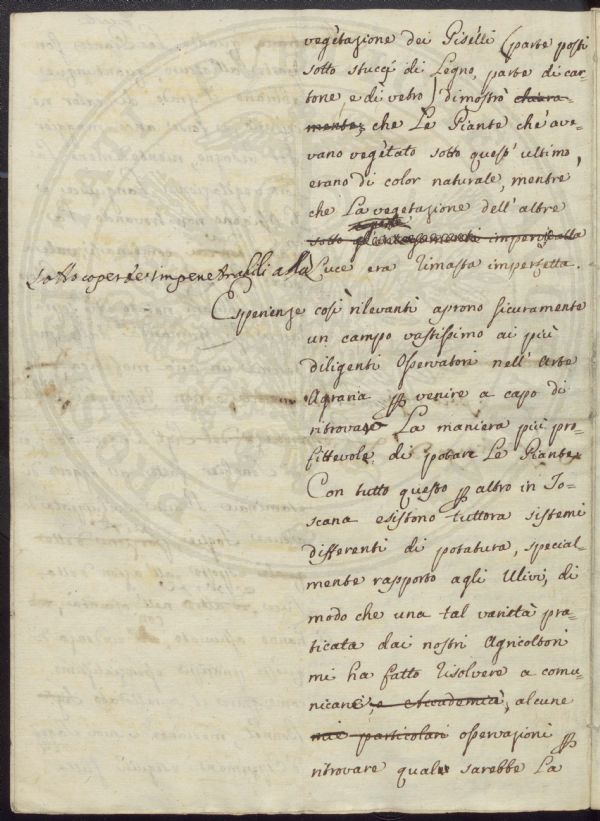 vegetazione dei Piselli (parte posti
sotto stucci di Legno, parte di car-
tone e di vetro) dimostrò chiara-
mente, che Le Piante che ave-
vano vegetato sotto quest' ultimo,
erano di color naturale, mentre
che La vegetazione dell' altre
sotto
sotto coperte impenetrabili alla Luce era rimasta imperfetta.
Esperienze così rilevanti aprono sicuramente
un campo vastissimo ai più
diligenti Osservatori nell' Arte
Agraria ꝑ venire a capo di
ritrovare La maniera più pro-
fittevole di potare Le Piante,
Con tutto questo ꝑ altro in To-
scana esistono tuttora sistemi
differenti di potatura, special-
mente rapporto agli Ulivi, di
modo che una tal varietà pra-
ticata dai nostri Agricoltori
mi ha fatto risolvere a comu-
nicare, e Accademici, alcune
mie particolari osservazioni ꝑ
ritrovare quale sarebbe La